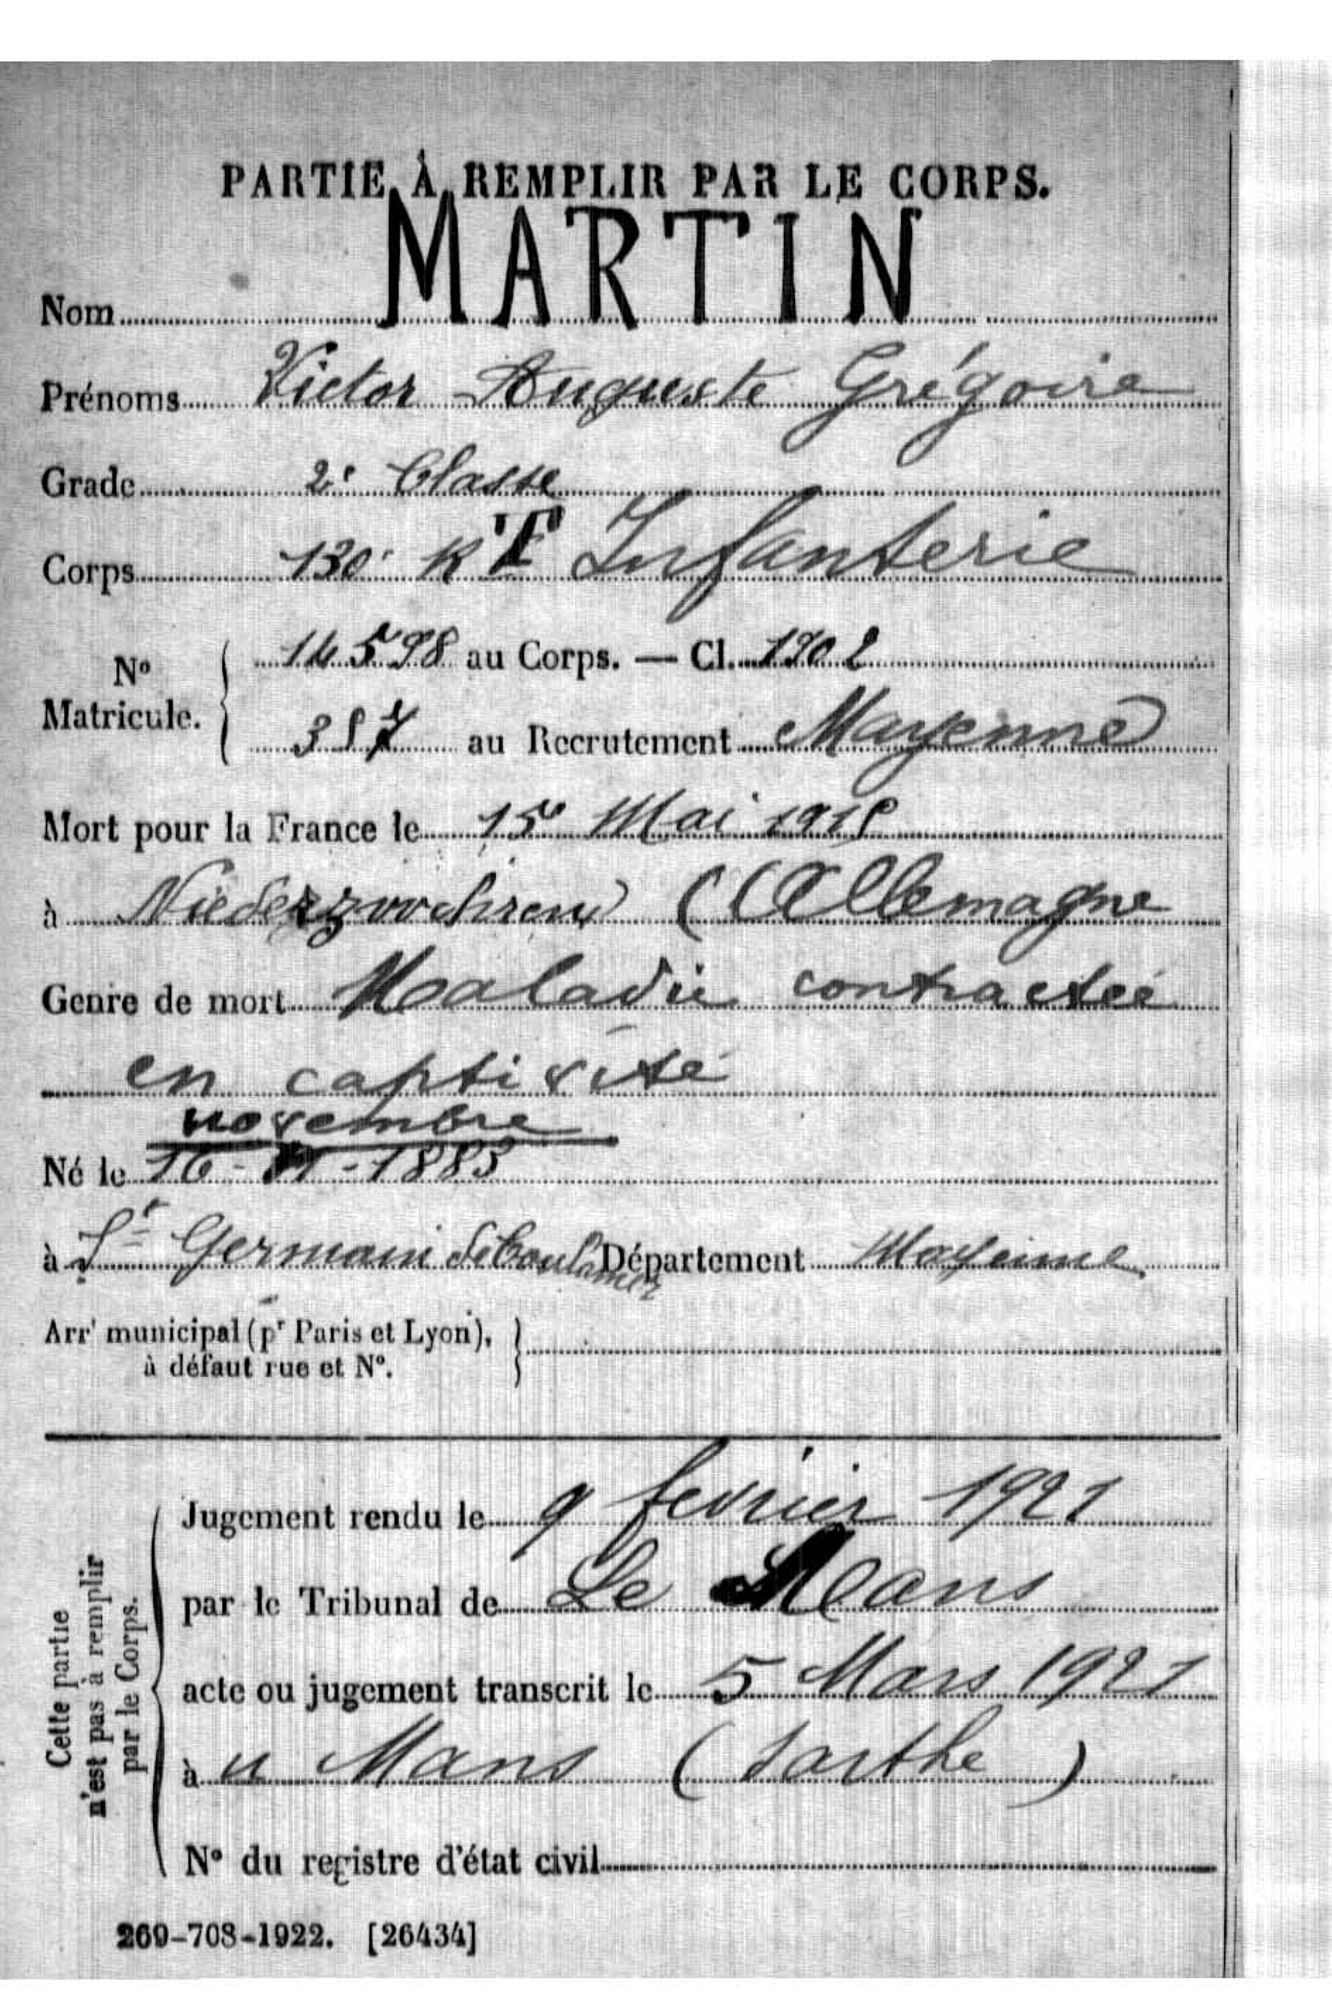 PARTIE À REMPLIR PAR LE CORPS.
Nom MARTIN
Prénoms Victor Auguste Grégoire
Grade 2e Classe
Corps 130e RT Infanterie
No Matricule. 14598 au Corps. — Cl. 1902
387 au Recrutement Mayenne
Mort pour la France le 15 Mai 1915
à (Allemagne
Genre de mort Maladie contractée
en captivité
novembre
Né le 16 - 11 - 1883
à St Germain Département Mayenne
Arrt municipal (pr Paris et Lyon), à défaut rue et No.
Cette partie n'est pas à remplir par le Corps.
Jugement rendu le 9 février 1921
par le Tribunal de Le Mans
acte ou jugement transcrit le 5 Mars 1921
à u Mans (Sarthe)
No du registre d'état civil
269-708-1922. [26434]